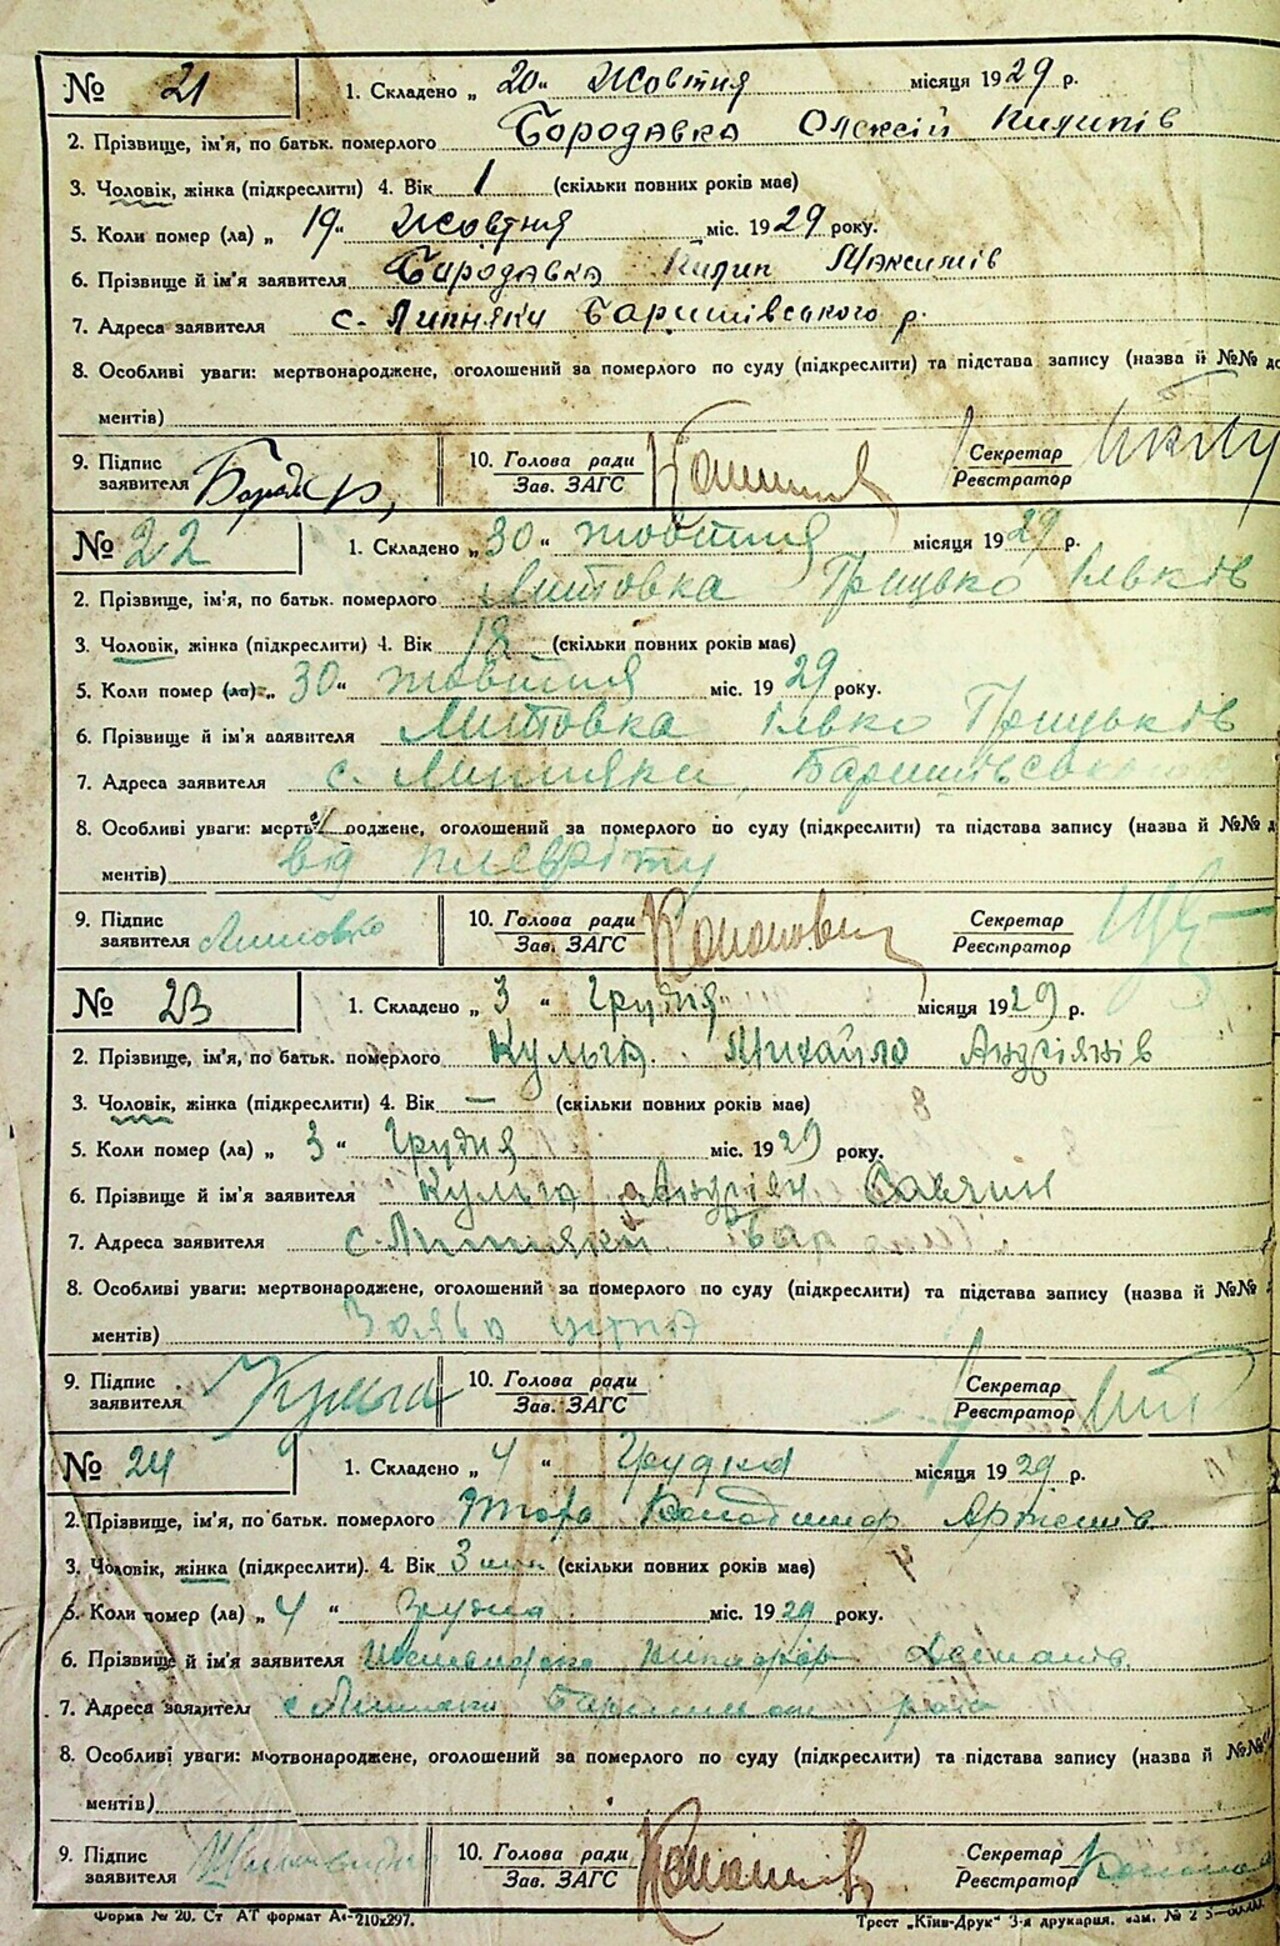 № 21 1. Складено „ 20 “ Жовтня місяця 1929 р.
2. Прізвище, ім'я, по батьк. померлого Бородавка Олексій Килипів
3. Чоловік, жінка (підкреслити) 4. Вік 1 (скільки повних років має)
5. Коли помер (ла) „ 19 “ Жовтня міс. 1929 року.
6. Прізвище й ім'я заявителя Бородавка Килип Максимів
7. Адреса заявителя с. Липняки Баришівського р.
8. Особливі уваги: мертвонароджене, оголошений за померлого по суду (підкреслити) та підстава запису (назва й №№ до
ментів)
9. Підпис заявителя 10. Голова ради Зав. ЗАГС Секретар Реєстратор
№ 22 1. Складено „ 30 “ жовтня місяця 1929 р.
2. Прізвище, ім'я, по батьк. померлого Литовка Грицько Ільків
3. Чоловік, жінка (підкреслити) 4. Вік 18 (скільки повних років має)
5. Коли помер (ла) „ 30 “ жовтня міс. 1929 року.
6. Прізвище й ім'я заявителя Литовка Ілько Грицьків
7. Адреса заявителя с. Липняки, Баришівського
8. Особливі уваги: мертвонароджене, оголошений за померлого по суду (підкреслити) та підстава запису (назва й №№ д
ментів) від плевріту
9. Підпис заявителя Литовка 10. Голова ради Зав. ЗАГС Секретар Реєстратор
№ 23 1. Складено „ 3 “ Грудня місяця 1929 р.
2. Прізвище, ім'я, по батьк. померлого Кульга Михайло Андріянів
3. Чоловік, жінка (підкреслити) 4. Вік — (скільки повних років має)
5. Коли помер (ла) „ 3 “ Грудня міс. 1929 року.
6. Прізвище й ім'я заявителя Кульга Андріян
7. Адреса заявителя с. Липняки Бар
8. Особливі уваги: мертвонароджене, оголошений за померлого по суду (підкреслити) та підстава запису (назва й №№
ментів) Заява устна
9. Підпис заявителя Кульга 10. Голова ради Зав. ЗАГС Секретар Реєстратор
№ 24 1. Складено „ 4 “ Грудня місяця 1929 р.
2. Прізвище, ім'я, по батьк. померлого Володимир Артемів
3. Чоловік, жінка (підкреслити). 4. Вік 3 (скільки повних років має)
5. Коли помер (ла) „ 4 “ Грудня міс. 1929 року.
6. Прізвище й ім'я заявителя
7. Адреса заявителя с Липняки
8. Особливі уваги: мертвонароджене, оголошений за померлого по суду (підкреслити) та підстава запису (назва й №№
ментів)
9. Підпис заявителя 10. Голова ради Зав. ЗАГС Секретар Реєстратор
Форма № 20. Ст АТ формат А4-210х297. Трест „Київ-Друк“ 3-я друкарня. зам. №